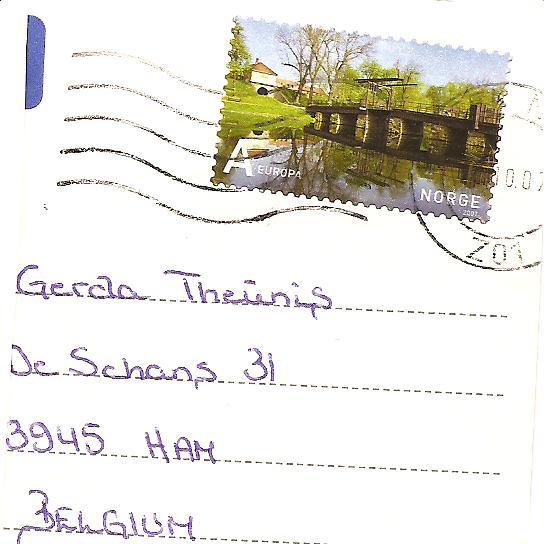 A EUROPA
NORGE
2007
201
Gerda Theunis
De Schans 31
3945 HAM
BELGIUM